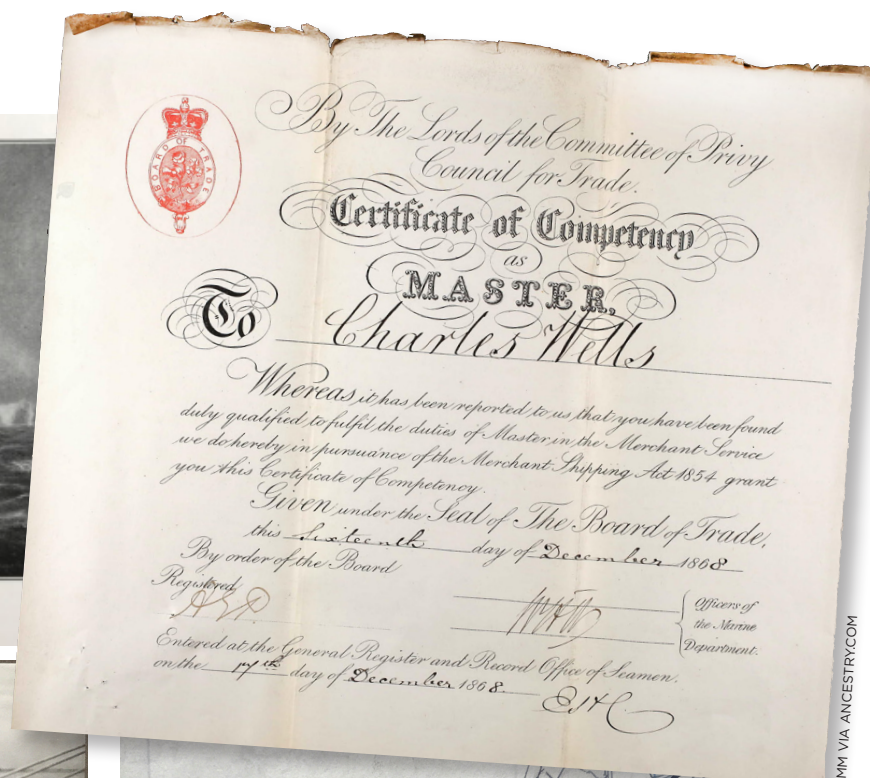 BOARD OF TRADE
By The Lords of the Committee of Privy
Council for Trade.
Certificate of Competency
as
MASTER,
To Charles Wells
Whereas it has been reported to us that you have been found
duly qualified to fulfil the duties of Master in the Merchant Service
we do hereby in pursuance of the Merchant Shipping Act 1854 grant
you this Certificate of Competency.
Given under the Seal of The Board of Trade,
this Sixteenth day of December 1868
By order of the Board
Registered
Officers of
the Marine
Department.
Entered at the General Register and Record Office of Seamen.
on the 17th day of December 1868.
MM VIA ANCESTRY.COM